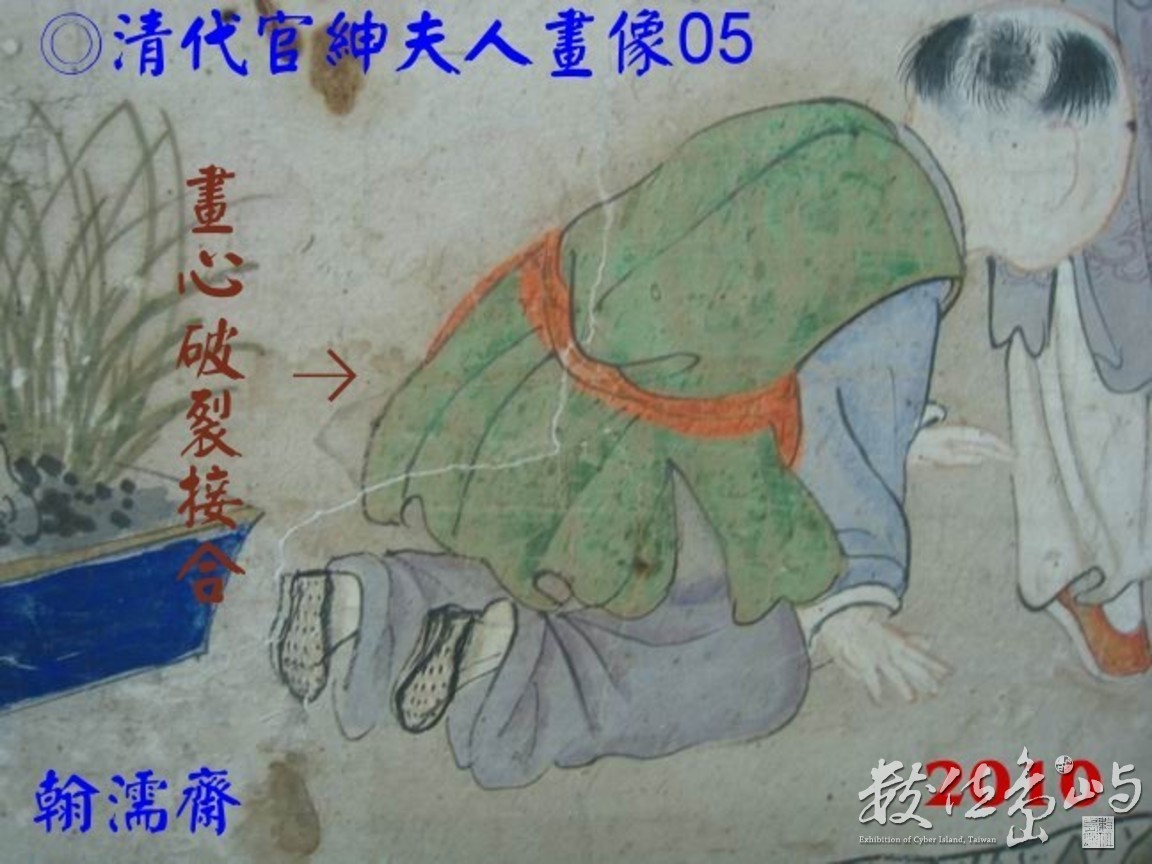 ◎清代官紳夫人畫像05
畫心破裂接合
→
翰濡齋
2010
數位島嶼
Exhibition of Cyber Island, Taiwan